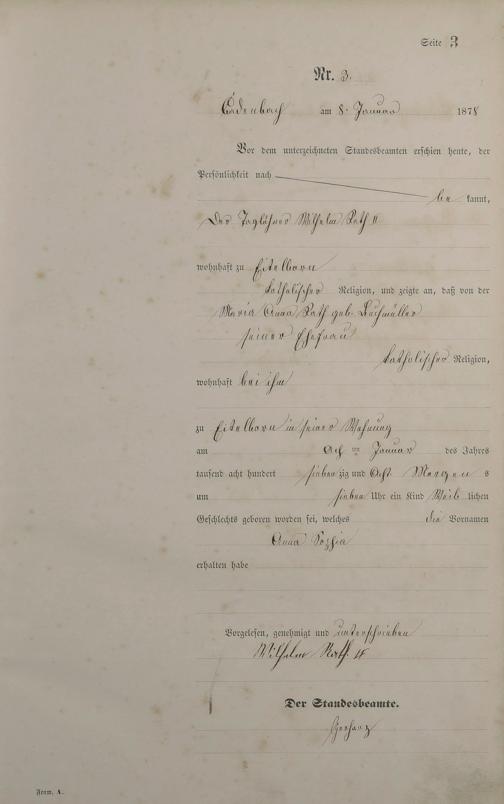 Seite 3
Nr. 3.
Cadenbach am 8. Januar 1878
Vor dem unterzeichneten Standesbeamten erschien heute, der
Persönlichkeit nach
be kannt,
der Taglöhner Wilhelm Roth II
wohnhaft zu Eitelborn
katholischer Religion, und zeigte an, daß von der
Maria Anna Roth geb.
seiner Ehefrau
katholischer Religion,
wohnhaft bei ihm
zu Eitelborn in seiner Wohnung
am Januar des Jahres
tausend acht hundert siebenzig und Acht Morgens
um sieben Uhr ein Kind Weiblichen
Geschlechts geboren worden sei, welches die Vornamen
Anna Sophia
erhalten habe
Vorgelesen, genehmigt und unterschrieben
Wilhelm Roth. II
Der Standesbeamte.
Form. A.